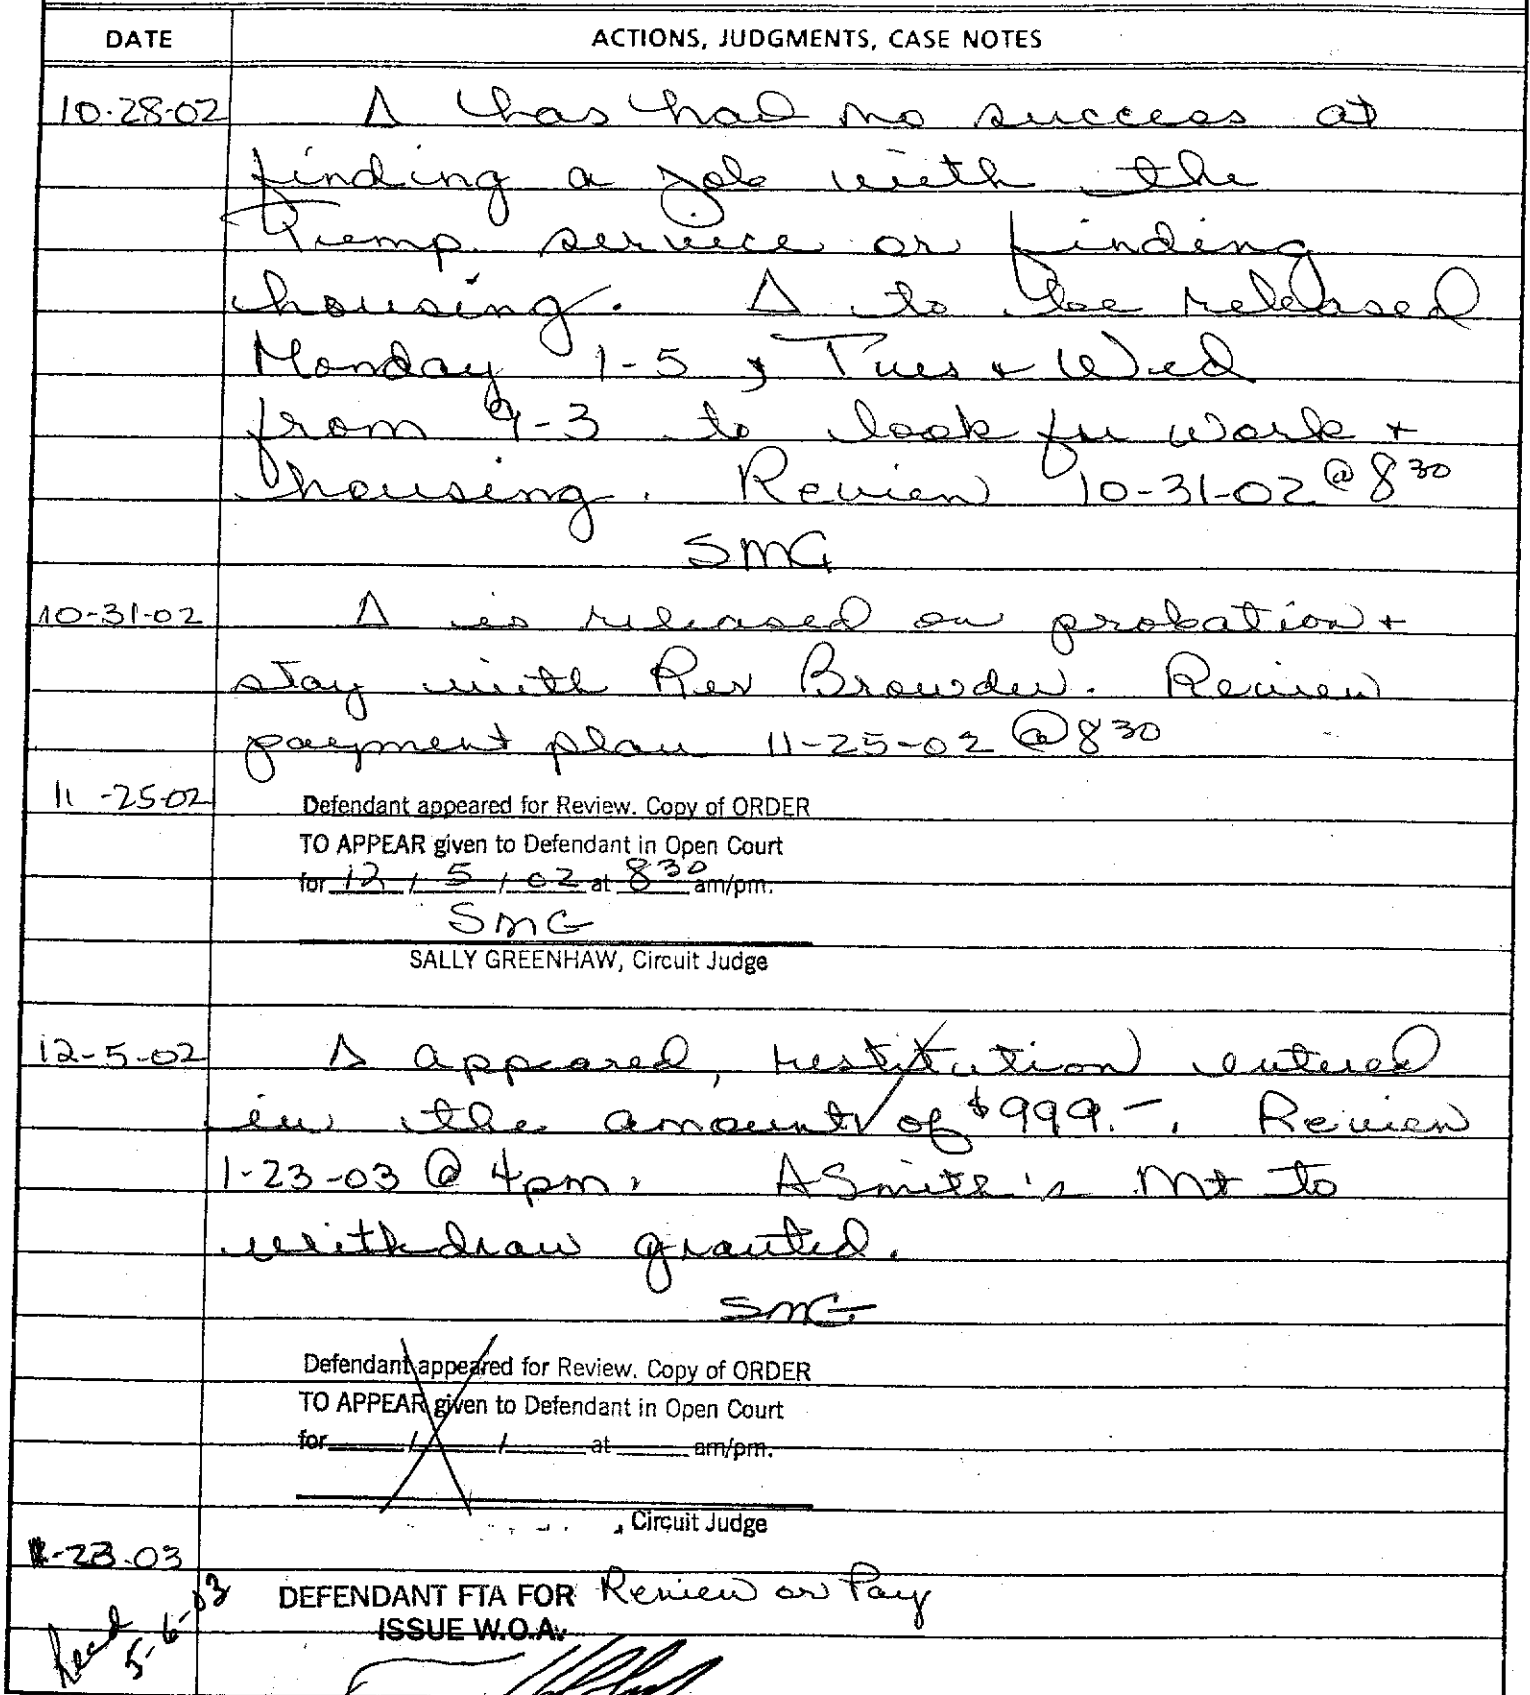 DATE ACTIONS, JUDGMENTS, CASE NOTES
10-28-02 Δ has had no success at
finding a job with the
Temp. service or finding
housing. Δ to be released
Monday 1-5, Tues + Wed
from 9-3 to look for work +
housing. Review 10-31-02 @ 8 30
SMG
10-31-02 Δ is released on probation +
stay with Rev Browder. Review
payment plan 11-25-02 @ 8 30
11-25-02 Defendant appeared for Review. Copy of ORDER
TO APPEAR given to Defendant in Open Court
for 12 / 5 / 02 at 8 30 am/pm.
SMG
SALLY GREENHAW, Circuit Judge
12-5-02 Δ appeared, restitution entered
in the amount of $999.-. Review
1-23-03 @ 4pm. A Smith's Mt to
withdraw granted.
SMG
Defendant appeared for Review. Copy of ORDER
TO APPEAR given to Defendant in Open Court
for / / at am/pm.
, Circuit Judge
1-23-03
DEFENDANT FTA FOR Review or Pay
ISSUE W.O.A.
5-6-03